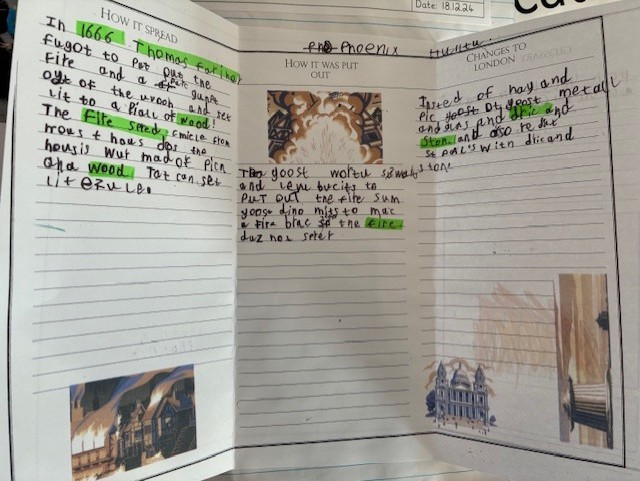 Date: 18.12.24
HOW IT SPREAD
In 1666 Thomas farinor
fugot to Pot Out the
fire and a Spark jumpt
out of the uvooh and set
lit to a Piall of wood!
The fire spred, cwicle from
hous t hous dos the
housis wur mad of Picn
and wood. Tat can set
lit ezule.
Phoenix
HOW IT WAS PUT
OUT
The yoost wortu
and levu bucits to
PUT OUT the fire sum
yoost dino mits to mac
a fire brac so the fire
duz not spret
CHANGES TO
LONDON
Insted of hay and
Pic yoost metall
and and dric and
Ston. and also re
St PaLs with dric and
stone